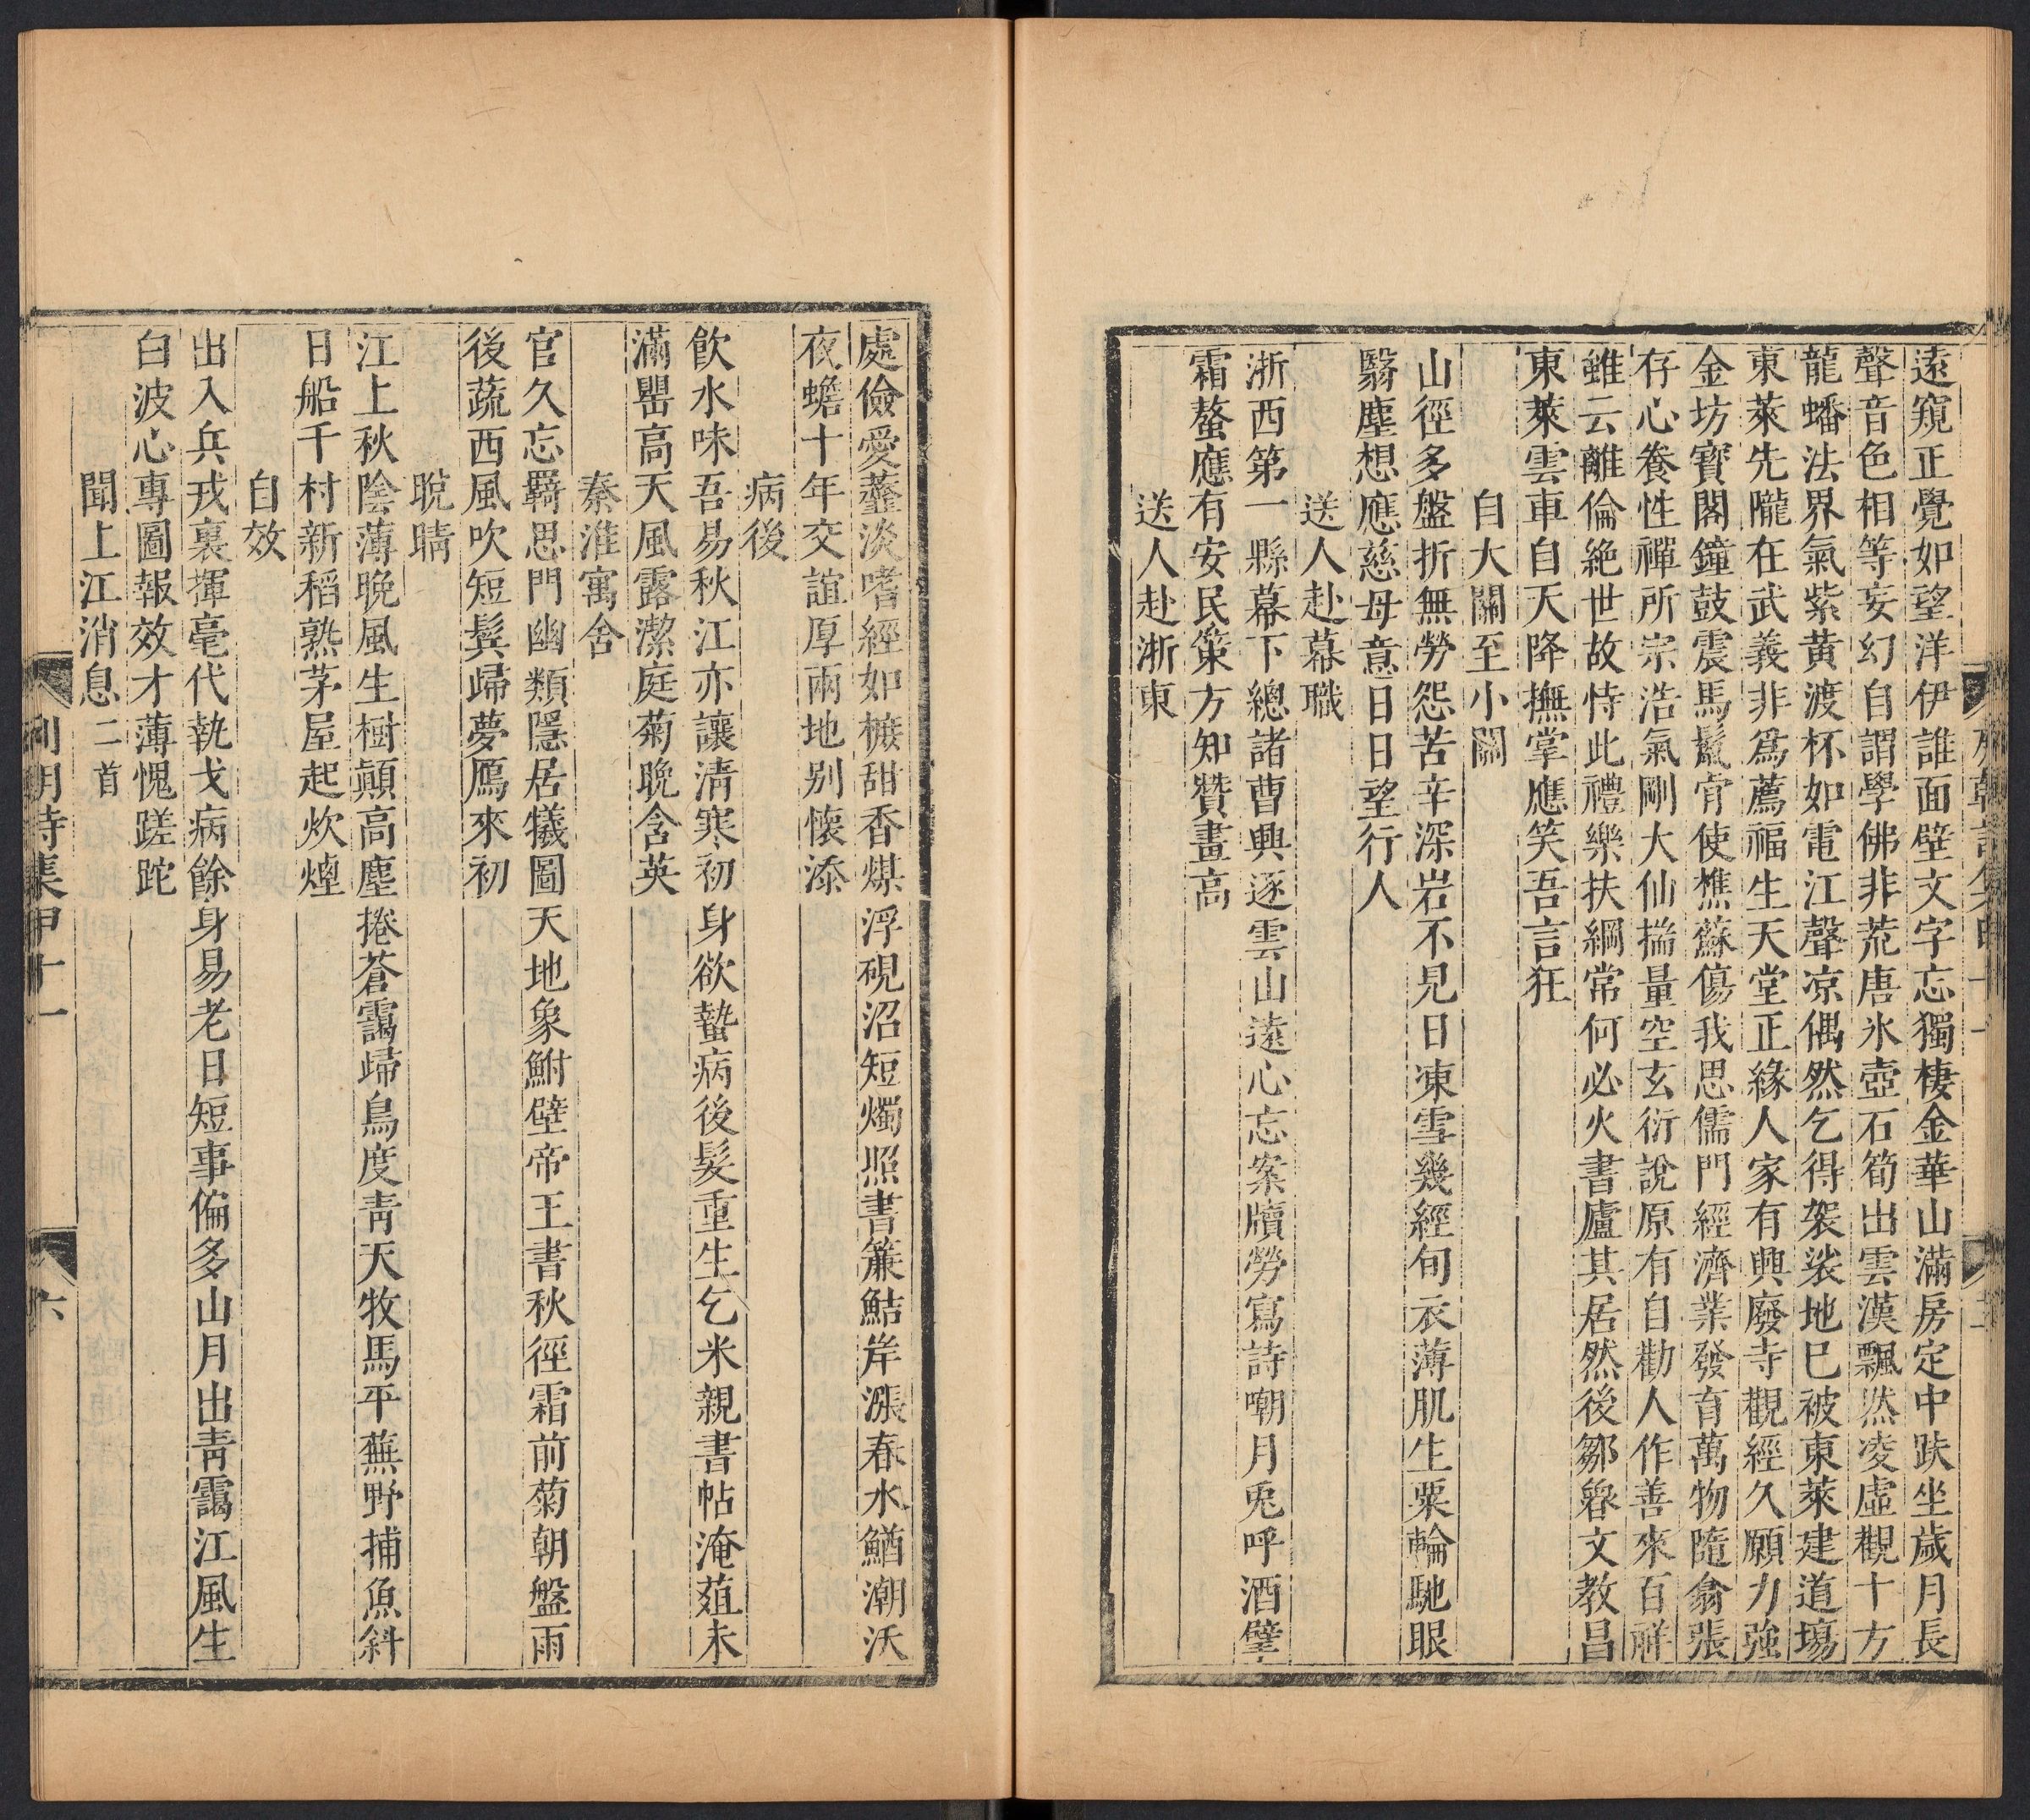 遠窺正覺如望洋伊誰面壁文字忘獨棲金華山滿房定中趺坐歲月長
聲音色相等妄幻自謂學佛非荒唐氷壺石筍出雲漢飄然凌虛觀十方
龍蟠法界氣紫黃渡杯如電江聲凉偶然乞得袈裟地巳被東萊建道場
東萊先隴在武義非爲薦福生天堂正緣人家有興廢寺觀經久願力強
金坊寶閣鐘鼓震馬鬣肯使樵蘇傷我思儒門經濟業發育萬物隨翕張
存心養性禪所宗浩氣剛大仙揣量空玄衍說原有自勸人作善來百祥
雖云離倫絶世故恃此禮樂扶綱常何必火書廬其居然後鄒魯文教昌
東萊雲車自天降撫掌應笑吾言狂
自大關至小關
山徑多盤折無勞怨苦辛深岩不見日凍雪幾經旬衣薄肌生粟輪馳眼
翳塵想應慈母意日日望行人
送人赴幕職
浙西第一縣幕下總諸曹興逐雲山遠心忘案牘勞寫詩嘲月兎呼酒擘
霜螯應有安民策方知贊畫高
送人赴浙東
處儉愛虀淡嗜經如樜甜香煤浮硯沼短燭照書簾鮚岸漲春水鰌潮沃
夜蟾十年交誼厚兩地別懷添
病後
飲水味吾易秋江亦讓清寒初身欲蟄病後髮重生乞米親書帖淹菹未
滿罌高天風露潔庭菊晚含英
秦淮寓舍
官久忘羇思門幽類隱居犧圖天地象鮒壁帝王書秋徑霜前菊朝盤雨
後蔬西風吹短鬂歸夢鴈來初
晚晴
江上秋陰薄晚風生樹顛高塵捲蒼靄歸鳥度靑天牧馬平蕪野捕魚斜
日船千村新稻熟茅屋起炊煙
自效
出入兵戎裏揮毫代執戈病餘身易老日短事偏多山月出靑靄江風生
白波心專圖報效才薄愧蹉跎
聞上江消息二首
列朝詩集甲十一
六